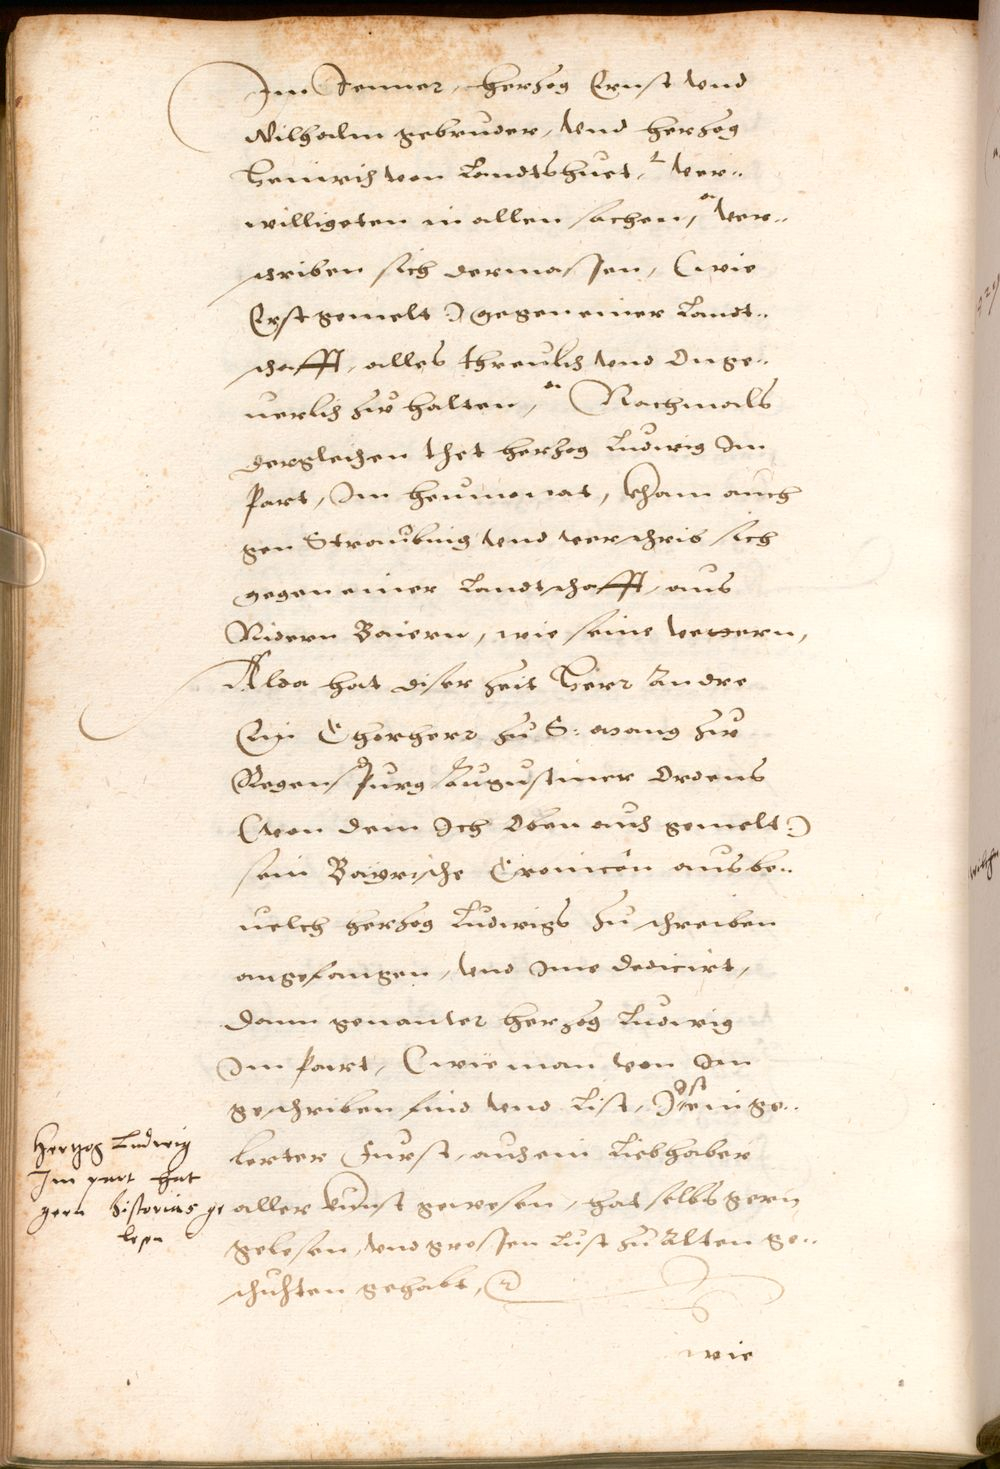 Im Jenner, herzog Ernst vnd
Wilhalm gebrueder, vnd herzog
Heinrich von Landtshuet, ver-
willigeten in allen sachen, ver-
schriben sich dermassen, (wie
Erstgemelt) gegen einer Landt-
schafft, alles threulich vnd Onge-
uerlich zw halten, Nachmals
dergleichen thet herzog Ludwig Im
Part, Im heumonat, kham auch
gen Straubing vnd verschrib sich
gegen einer Landtschafft, aus
Nidern Baiern, wie seine vettern,
Alda hat diser zeit Herr Andre
Ein Chorherr zu S: mang zw
Regenspurg Augustiner Ordens
(von dem Ich Oben auch gemelt)
sein Bayrische Cronicon aus be-
uelch herzog Ludwigs zu schreiben
angefangen, vnd Ime dedicirt,
Dann genanter herzog Ludwig
Im Part, (wie man von Im
geschriben find vnd List,) Ist ein ge-
lerter Furst, auch ein Liebhaber
aller kunst gewesen, hat selbs gern
gelesen, vnd grossen Lust zu Alten ge-
schichten gehabt,
Hertzog Ludwig
Im part hat
gern historias ge
lesen
wie